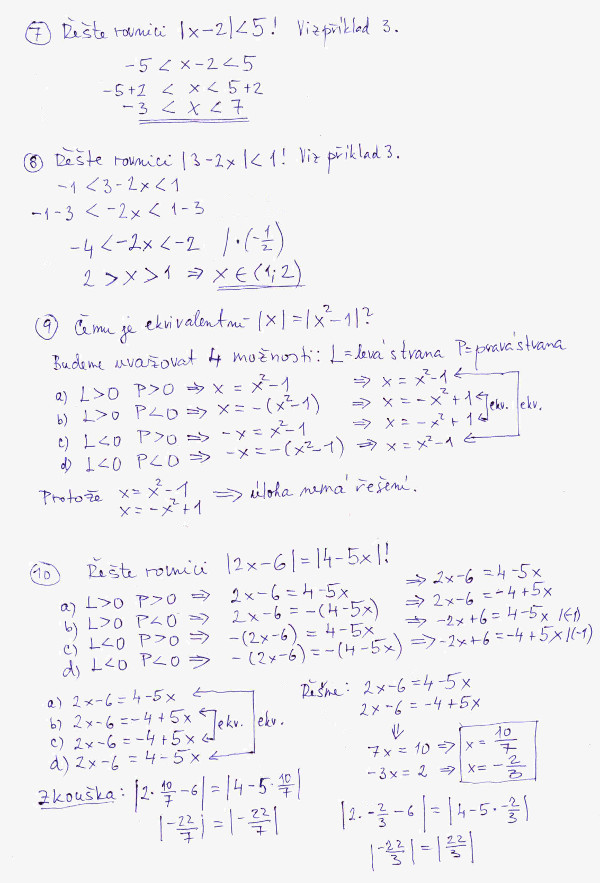 7 Řešte rovnici |x-2|<5! Viz příklad 3.
-5 < x-2 < 5
-5+2 < x < 5+2
-3 < x < 7
8 Řešte rovnici |3-2x|<1! Viz příklad 3.
-1 < 3-2x < 1
-1-3 < -2x < 1-3
-4 < -2x < -2 /·(-1/2)
2 > x > 1 ⇒ x ∈ (1;2)
9 Čemu je ekvivalentní |x|=|x²-1|?
Budeme uvažovat 4 možnosti: L=levá strana P=pravá strana
a) L>0 P>0 ⇒ x = x²-1 ⇒ x = x²-1
b) L>0 P<0 ⇒ x = -(x²-1) ⇒ x = -x²+1 ekv. ekv.
c) L<0 P>0 ⇒ -x = x²-1 ⇒ x = -x²+1
d) L<0 P<0 ⇒ -x = -(x²-1) ⇒ x = x²-1
Protože x = x²-1 ⇒ úloha nemá řešení.
x = -x²+1
10 Řešte rovnici |2x-6|=|4-5x|!
a) L>0 P>0 ⇒ 2x-6 = 4-5x ⇒ 2x-6 = 4-5x
b) L>0 P<0 ⇒ 2x-6 = -(4-5x) ⇒ 2x-6 = -4+5x
c) L<0 P>0 ⇒ -(2x-6) = 4-5x ⇒ -2x+6 = 4-5x /(-1)
d) L<0 P<0 ⇒ -(2x-6) = -(4-5x) ⇒ -2x+6 = -4+5x /(-1)
a) 2x-6 = 4-5x
b) 2x-6 = -4+5x ekv. ekv.
c) 2x-6 = -4+5x
d) 2x-6 = 4-5x
Řešme: 2x-6 = 4-5x
2x-6 = -4+5x
⇓
7x = 10 ⇒ x = 10/7
-3x = 2 ⇒ x = -2/3
Zkouška: |2·10/7-6| = |4-5·10/7|
|-22/7| = |-22/7|
|2·-2/3-6| = |4-5·-2/3|
|-22/3| = |22/3|